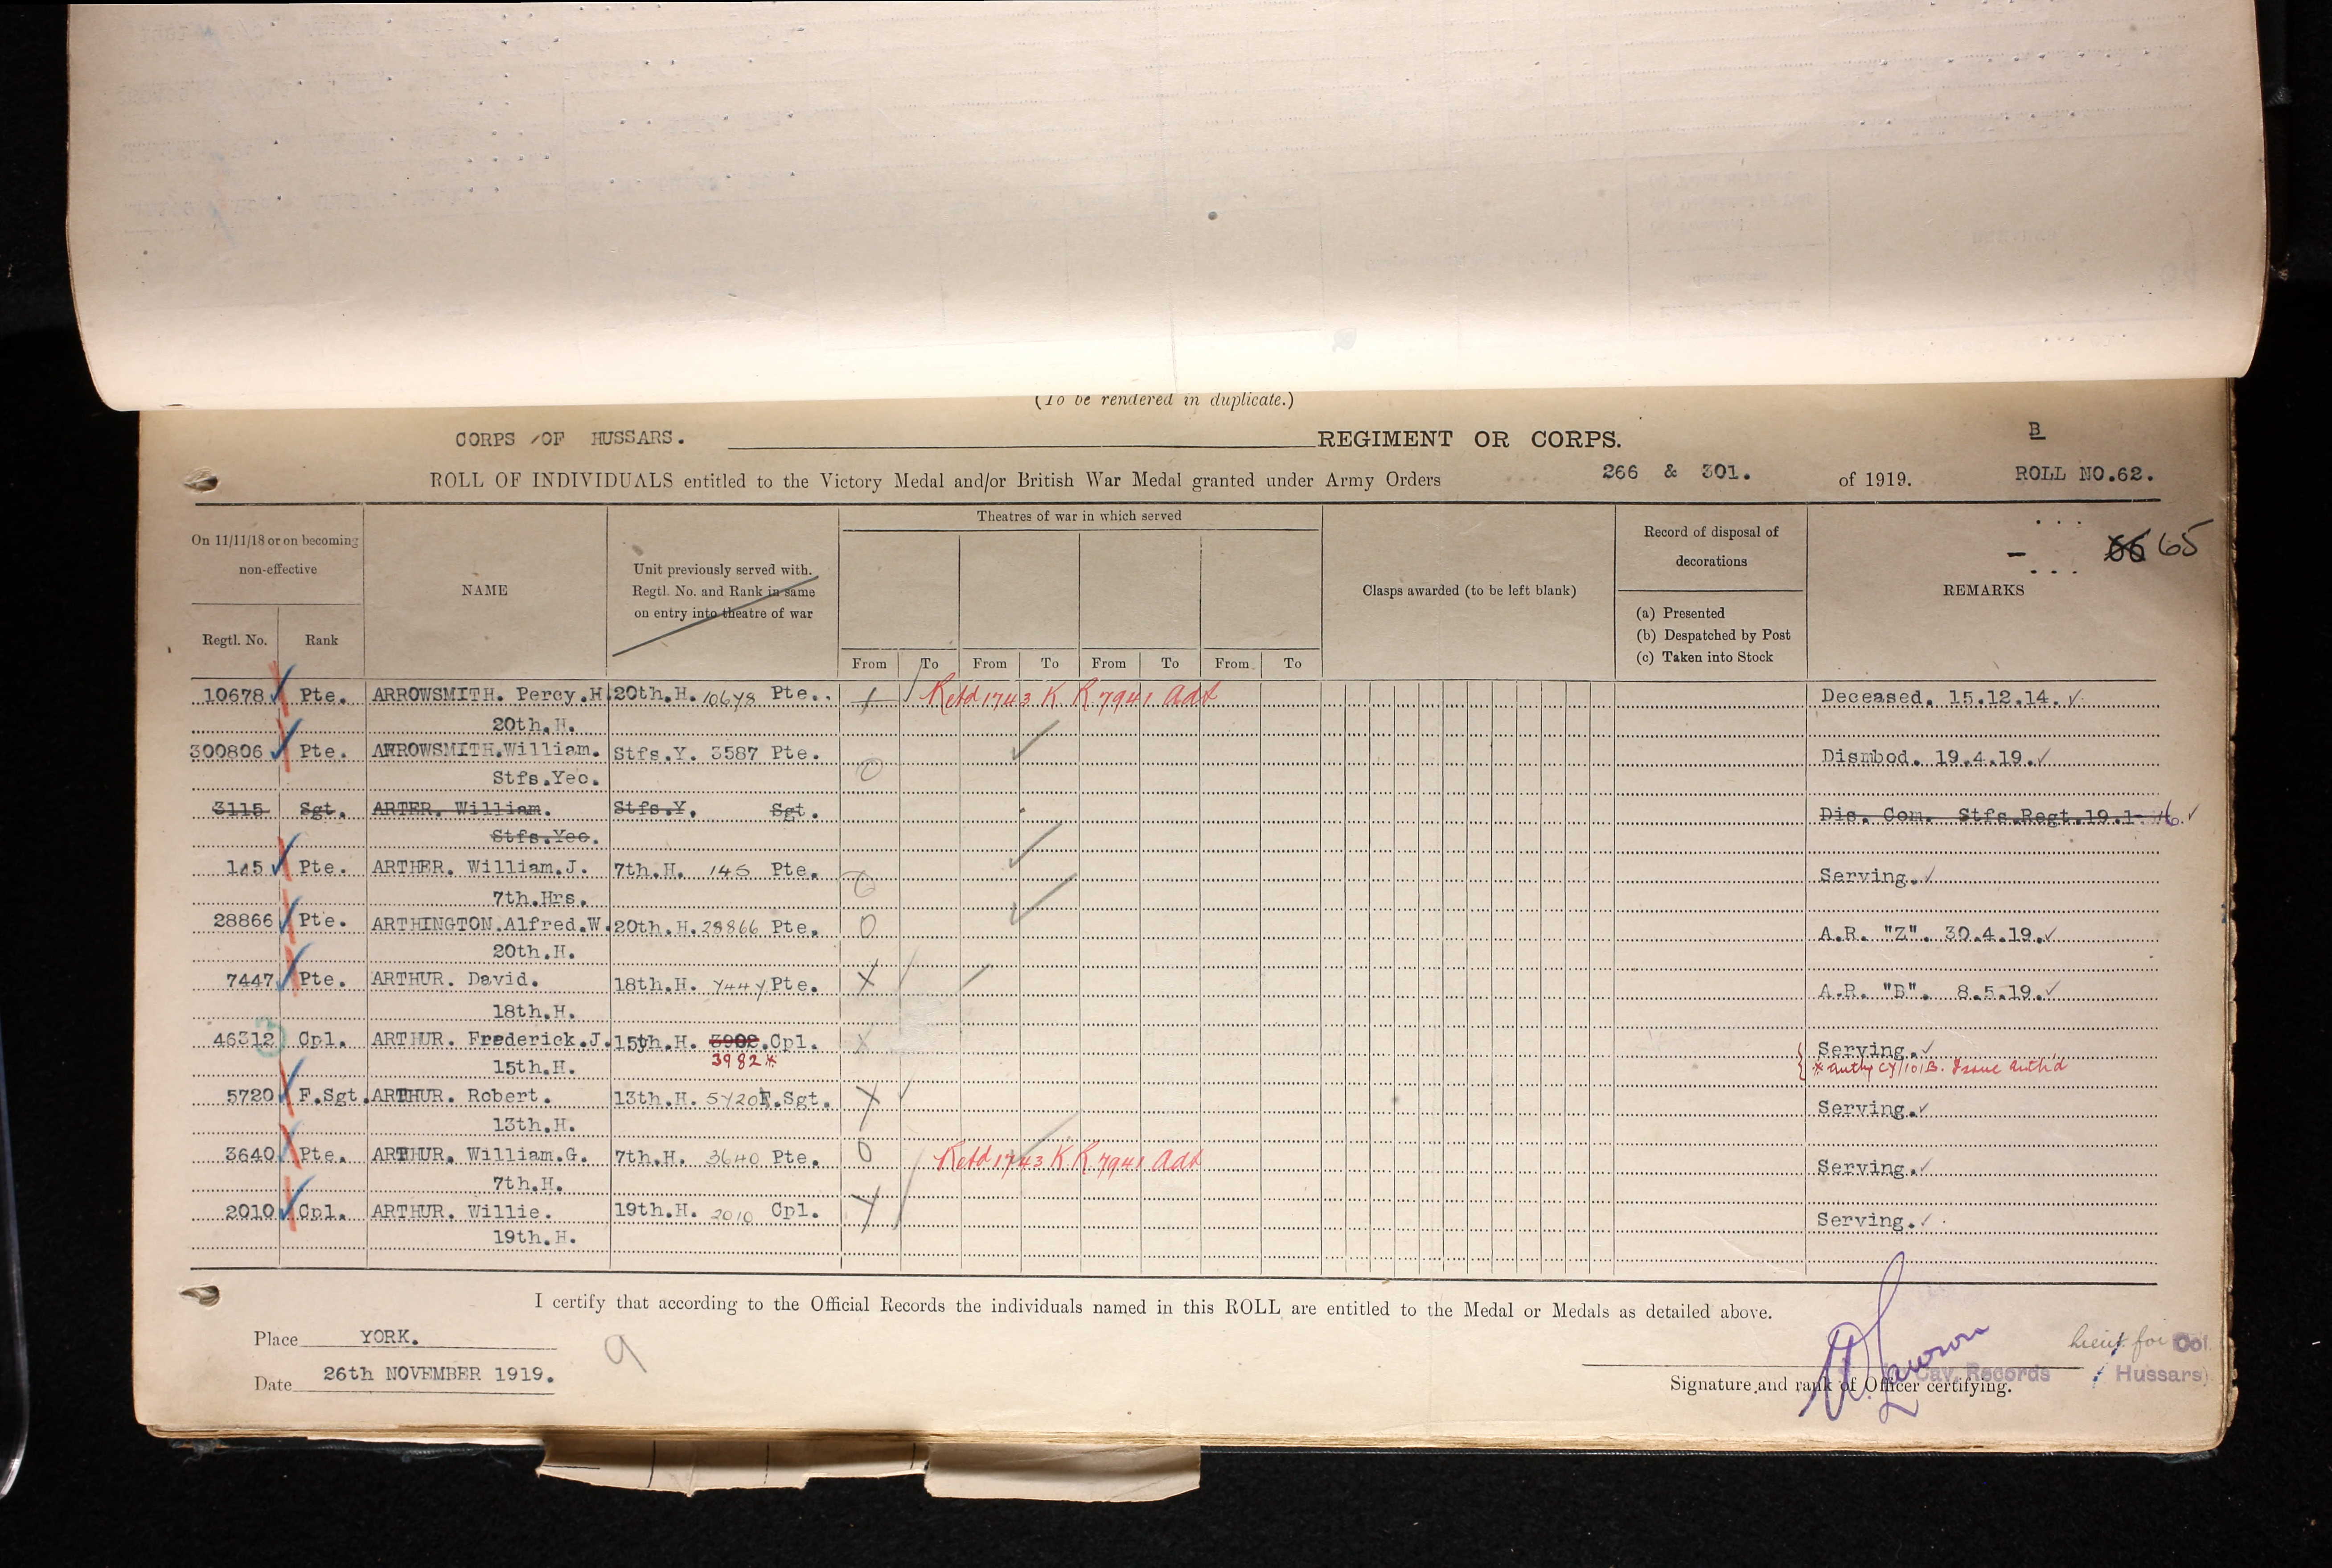 (To be rendered in duplicate.)
CORPS OF HUSSARS. REGIMENT OR CORPS. B
ROLL OF INDIVIDUALS entitled to the Victory Medal and/or British War Medal granted under Army Orders 266 & 301. of 1919. ROLL NO.62.
On 11/11/18 or on becoming non-effective
Regtl. No. Rank
NAME
Unit previously served with.
Regtl. No. and Rank in same
on entry into theatre of war
Theatres of war in which served
From To From To From To From To
Clasps awarded (to be left blank)
Record of disposal of
decorations
(a) Presented
(b) Despatched by Post
(c) Taken into Stock
66 65
REMARKS
10678 Pte. ARROWSMITH. Percy.H. 20th.H. 10678 Pte. Retd 1743 K R 7941 Adt Deceased. 15.12.14.
20th.H.
300806 Pte. ARROWSMITH.William. Stfs.Y. 3587 Pte. O Dismbod. 19.4.19.
Stfs.Yeo.
3115 Sgt. ARTER. William. Stfs.Y. Sgt. Dis. Com. Stfs.Regt.19.1.16.
Stfs.Yeo.
145 Pte. ARTHER. William.J. 7th.H. 145 Pte. Serving.
7th.Hrs.
28866 Pte. ARTHINGTON.Alfred.W. 20th.H. 28866 Pte. O A.R. "Z". 30.4.19.
20th.H.
7447 Pte. ARTHUR. David. 18th.H. 7447 Pte. X A.R. "B". 8.5.19.
18th.H.
46312 Cpl. ARTHUR. Frederick.J. 15th.H. 3902. Cpl. X Serving.
15th.H. 3982* * Auth CY/101B. Issue Auth'd
5720 F.Sgt. ARTHUR. Robert. 13th.H. 5720 F.Sgt. X Serving.
13th.H.
3640 Pte. ARTHUR. William.G. 7th.H. 3640 Pte. O Retd 1743 K R 7941 Adt Serving.
7th.H.
2010 Cpl. ARTHUR. Willie. 19th.H. 2010 Cpl. X Serving.
19th.H.
I certify that according to the Official Records the individuals named in this ROLL are entitled to the Medal or Medals as detailed above.
Place YORK.
Date 26th NOVEMBER 1919.
9
Lawson Lieut for Col
Cav. Records Hussars)
Signature and rank of Officer certifying.